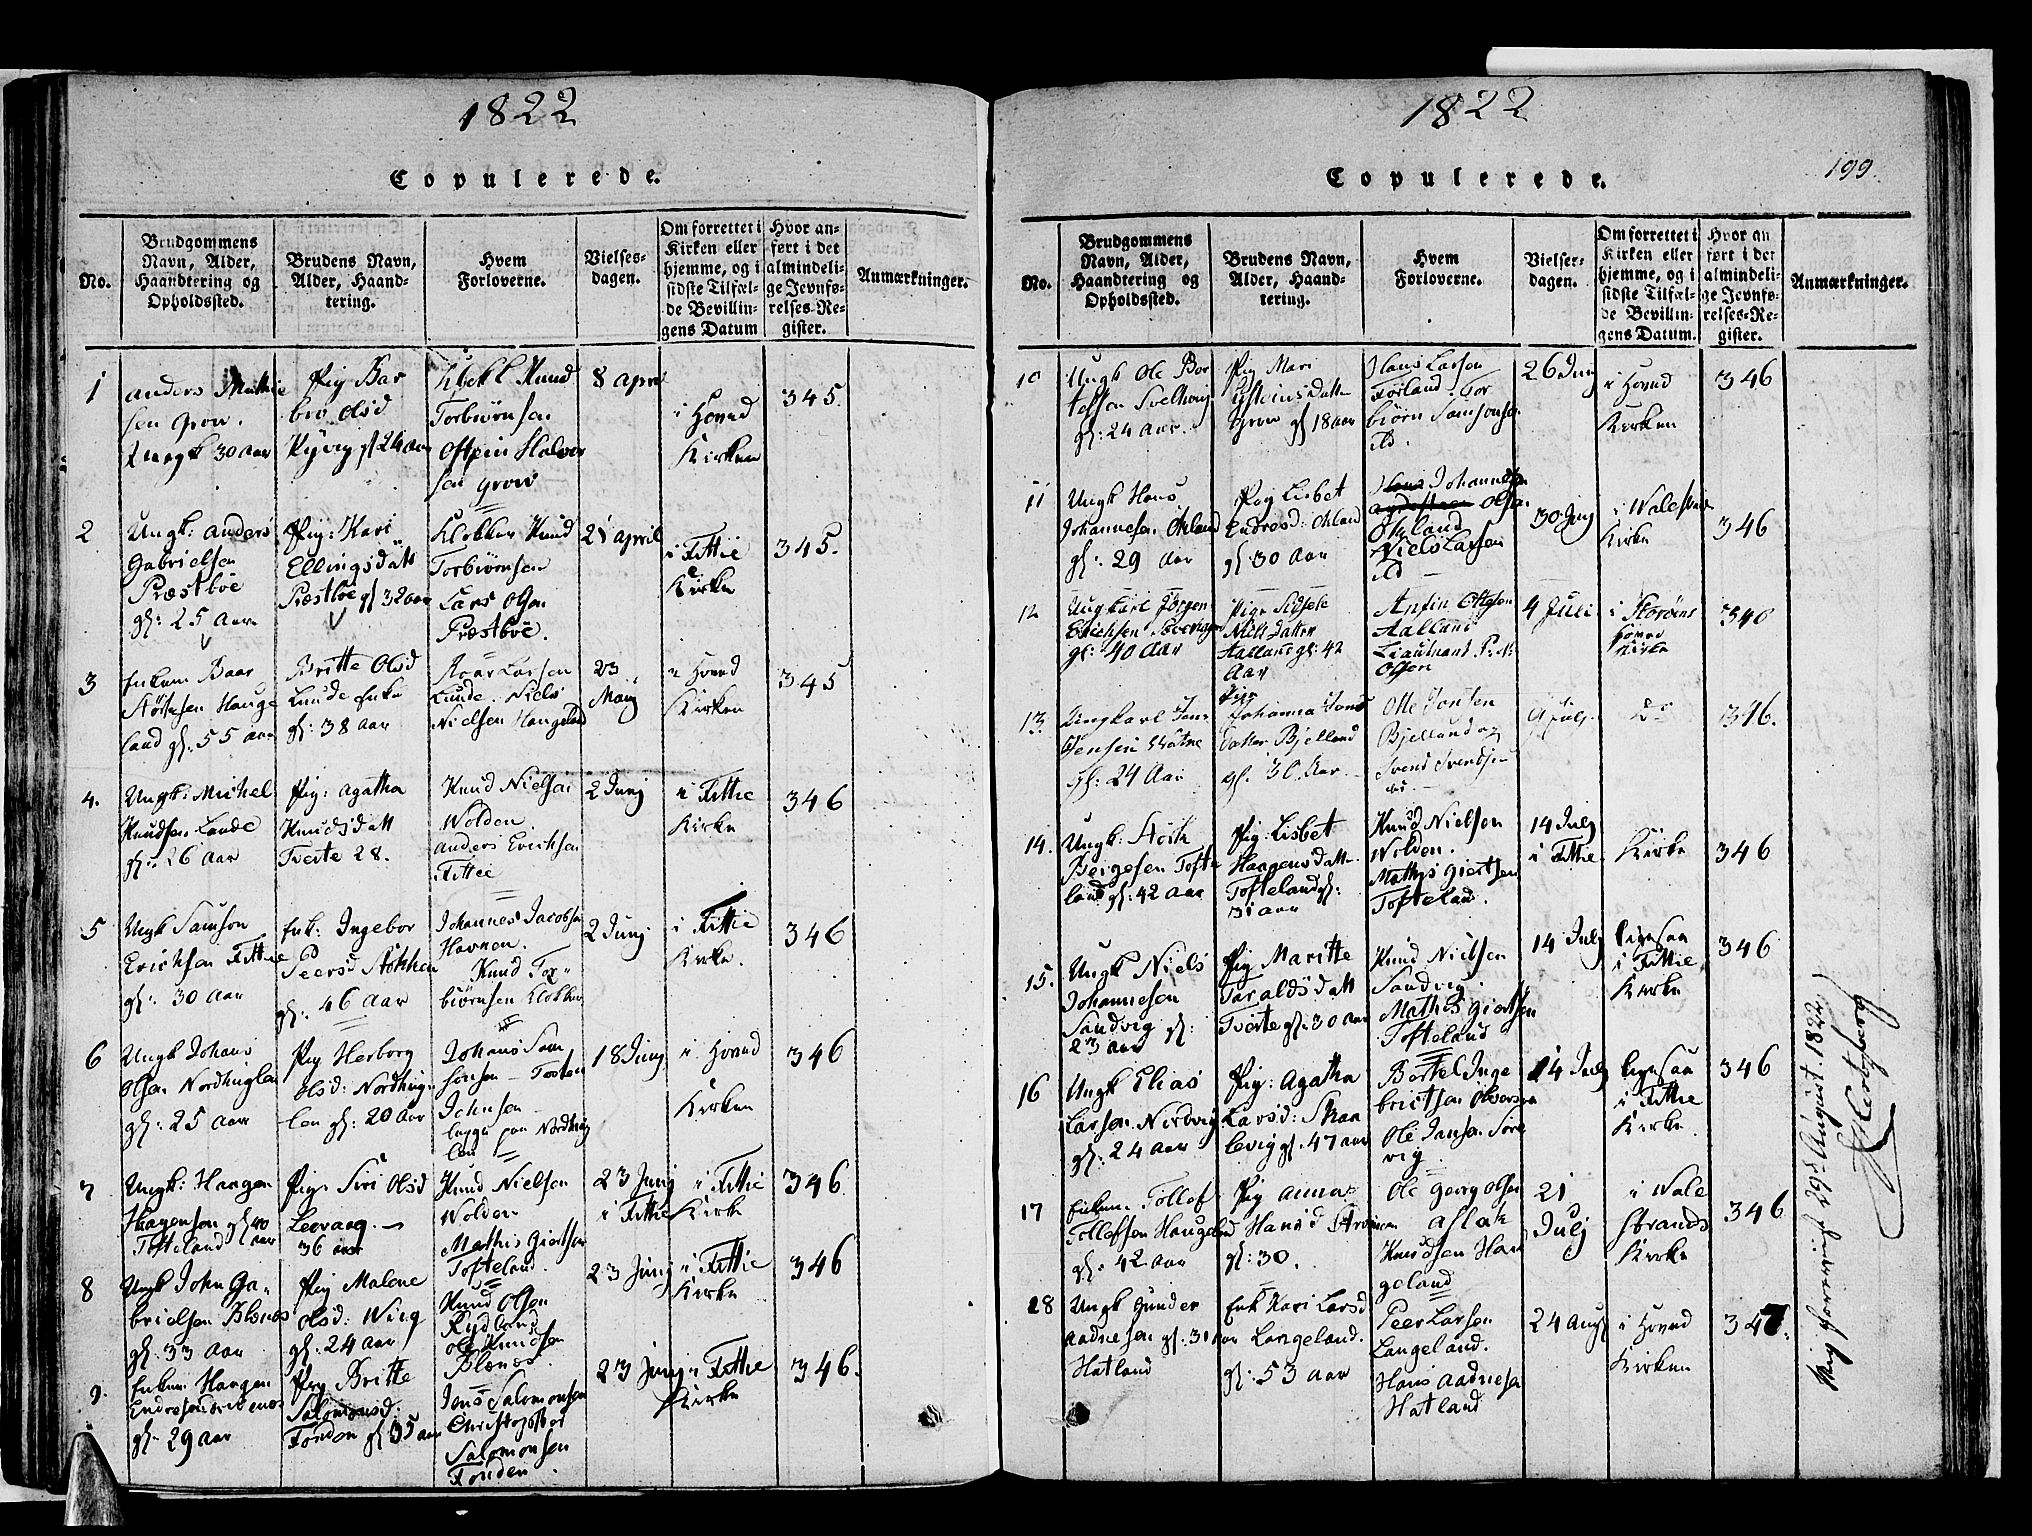 1822
Copulerede.
No.
Brudgommens
Navn, Alder,
Haandtering og
Opholdssted.
Brudens Navn,
Alder, Haand-
tering.
Hvem
Forloverne.
Vielses-
dagen.
Om forrettet i
Kirken eller
hjemme, og i
sidste Tilfæl-
de Bevillin-
gens Datum
Hvor an-
ført i det
almindeli-
ge Jevnfø-
relses-Re-
gister.
Anmærkninger.
1
anders Mathie
sen Grov.
30 aar
Pig Bar
bro Olsd
gl 24 aar
Knud
Torbiörnsen
Halvor
sen Grov
8 april
i Hovud
Kirken
345.
2
Ungk: anders
Gabrielsen
Præstböe
gl: 25 Aar
Pig: Kari
Ellingsdatt
Præstböe gl 32 aar
Klokker Knud
Torbiörnsen
Lars Olsen
Præstböe.
21 april
i Fittie
Kirke
345.
3
Enkem Baar
Störksen Hauge
land gl: 55 aar
Britte Olsd
Lunde Enke
gl: 38 aar
Roar Larsen
Lunde. Niels
Nielsen Haugeland
23
May
i Hovud
Kirken
345
4.
Ungk: Michel
Knudsen Lande
gl: 26 aar
Pig: Agatha
Knudsdatt
Tveite 28.
Knud Nielsen
Wolden
anders Erichsen
Fittie
2 Junj
i Fittie
Kirke
346
5
Ungk Samson
Erichsen Fittie
gl: 30 aar
Enk: Ingebor
Peersd Stökken
gl: 46 aar
Johannes Jacobsen
Havnen.
Knud Tor-
biörnsen Klokker
2 Junj
i Fittie
Kirke.
346
6
Ungk Johans
Olsen Nordhuglen
gl: 25 aar
Pig Herborg
Olsd: Nordhug-
len gl: 20 aar
Johans Sam
sonsen - Tosten
Johnsen
begge paa Nordhug
len
18 Junj
i Hovud
Kirken
346
7
Ungk: Haagen
Haagensen gl 40
Tofteland aar
Pig Siri Olsd
Leervaag.
36 aar
Knud Nielsen
Wolden
Mathis Giertsen
Tofteland.
23 Junj
i Fittie
i Fittie
Kirke
346
8
Ungk John Ga-
brielsen Blenes
gl: 33 aar
Pig Malene
Olsd: Wiig
gl: 24 aar
Knud Olsen
Rydland
Ole Knudsen
Blenes.
23 Junj
i Fittie
Kirke
346
9.
Enkem Haagen
Endresen
gl. 29 aar
Pig Britte
Salomonsd.
Fonden gl 35 aar
Jens Salomonsen
Christopher
Salomonsen
Fonden.
23 Junj
i Fittie
Kirke
346.
1822
199.
Copulerede.
No.
Brudgommens
Navn, Alder,
Haandtering og
Opholdssted.
Brudens Navn,
Alder, Haand-
tering.
Hvem
Forloverne.
Vielser-
dagen.
Om forrettet i
Kirken eller
hjemme, og i
sidste Tilfæl-
de Bevillin-
gens Datum.
Hvor an
ført i det
almindeli-
ge Jevnfø-
relses-Re-
gister.
Anmærkninger.
10
Ungk Ole Bor
telsen
gl: 24 aar.
Pig Mari
Östeinsdatt
Grov gl 18 aar
Hans Larsen
Førland. Tor
biörn Samsonsen
ibd.
26 Junj
i Hovud
Kirken
346
11
Ungk Hans
Johannesen Økland
gl: 29 Aar
Pig Lisbet
Endresd: Økland
gl: 30 Aar
Johannesen
Olsen
Økland
Niels Larsen
ibd
30 Junj
i Walestrand
Kirke
346
12
Ungkarl Jörgen
Erichsen
gl: 40 Aar
Pige Sidsele
Nielsdatter
Aalland gl: 42
Aar
Anfin Ottesen
Aalland
Lieutnant
Olsen
4 Juli
i Storöens
Kirke
346
13.
Ungkarl Jens
Jensen
gl: 24 Aar
Pige
Johanna Jons
datter Bjelland
gl: 30 Aar.
Ole Jonsen
Bjelland og
Svend Svendsen
9 Julj.
Do
346.
14.
Ungk: Störk
Börgesen Tofte
land gl: 42 aar
Pig Lisbet
Haagensdatt-
Tofteland gl:
31 aar
Knud Nielsen
Wolden.
Mathys Giertsen
Tofteland.
14 Julj
i Fittie
Kirke
346
15.
Ungk Niels
Johannesen
Sandvig gl:
23 aar
Pig Maritte
Taraldsdatt
Tveite gl. 30 aar
Knud Nielsen
Sandvig.
Mathis Giertsen
Tofteland
14 Julj
ligesaa
i Fittie
Kirke
346
16
Ungk Elias
Larsen
gl: 24 aar
Pig: Agatha
Larsd: Skaa
levig gl: 47 aar
Bertel Inge
brictsen
Ole Jansen Söre
vig.
14 Julj
ligesaa
i Fittie
Kirke
346
17
Enkem Tollef
Tollefsen Haugeland
gl: 42 aar
Pig anna
Hansd
gl: 30.
Ole Georg Olsen
aslak
Knudsen Hau
geland
21
Julj
i Wale
strands
Kirke
346
18
Ungk Gunder
aadnesen gl: 31 aar
Hatland
Enk Kari Larsd
Langeland.
gl: 53 aar
Peer Larsen
Langeland.
Hans aadnesen
Hatland
24 aug
i Hovud
Kirken
347.
29 August. 1822